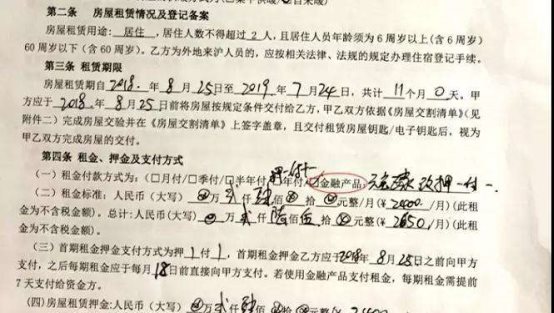 第二条 房屋租赁情况及登记备案
房屋租赁用途:居住,居住人数不得超过 2 人,且居住人员年龄须为 6 周岁以上(含 6 周岁)
60 周岁以下(含 60 周岁)。乙方为外地来沪人员的,应按相关法律、法规的规定办理住宿登记手续。
第三条 租赁期限
房屋租赁期自 2018 年 8 月 25 日至 2019 年 7 月 24 日,共计 11 个月 0 天,甲
方应于 2018 年 8 月 25 日前将房屋按规定条件交付给乙方,甲乙双方依据《房屋交割清单》(见
附件二)完成房屋交验并在《房屋交割清单》上签字盖章,且交付租赁房屋钥匙/电子钥匙后,视为
甲乙双方完成房屋的交付。
第四条 租金、押金及支付方式
押一付一
(一)租金付款方式为:(□月付/□季付/□半年付/□年付/☑金融产品) 改押一付一.
(二)租金标准:人民币(大写) 万 贰 仟 佰 拾 元整/月(¥ 2400 /月)(此租
金为不含税金额)。总计:人民币(大写) 万 贰 仟 陆 佰 伍 拾 元整/月(¥ 2650 /月)(此租
金为不含税金额)。
(三)首期租金押金支付方式为押 1 付 1,首期租金押金乙方应于 2018 年 8 月 25 日之前向甲方
支付,之后每期租金应于每月 18 日前直接向甲方支付。若使用金融产品支付租金,每期租金需提前
7 天支付给资金方。
(四)房屋租赁押金:人民币(大写) 万 贰 仟 佰 拾 元整 2400